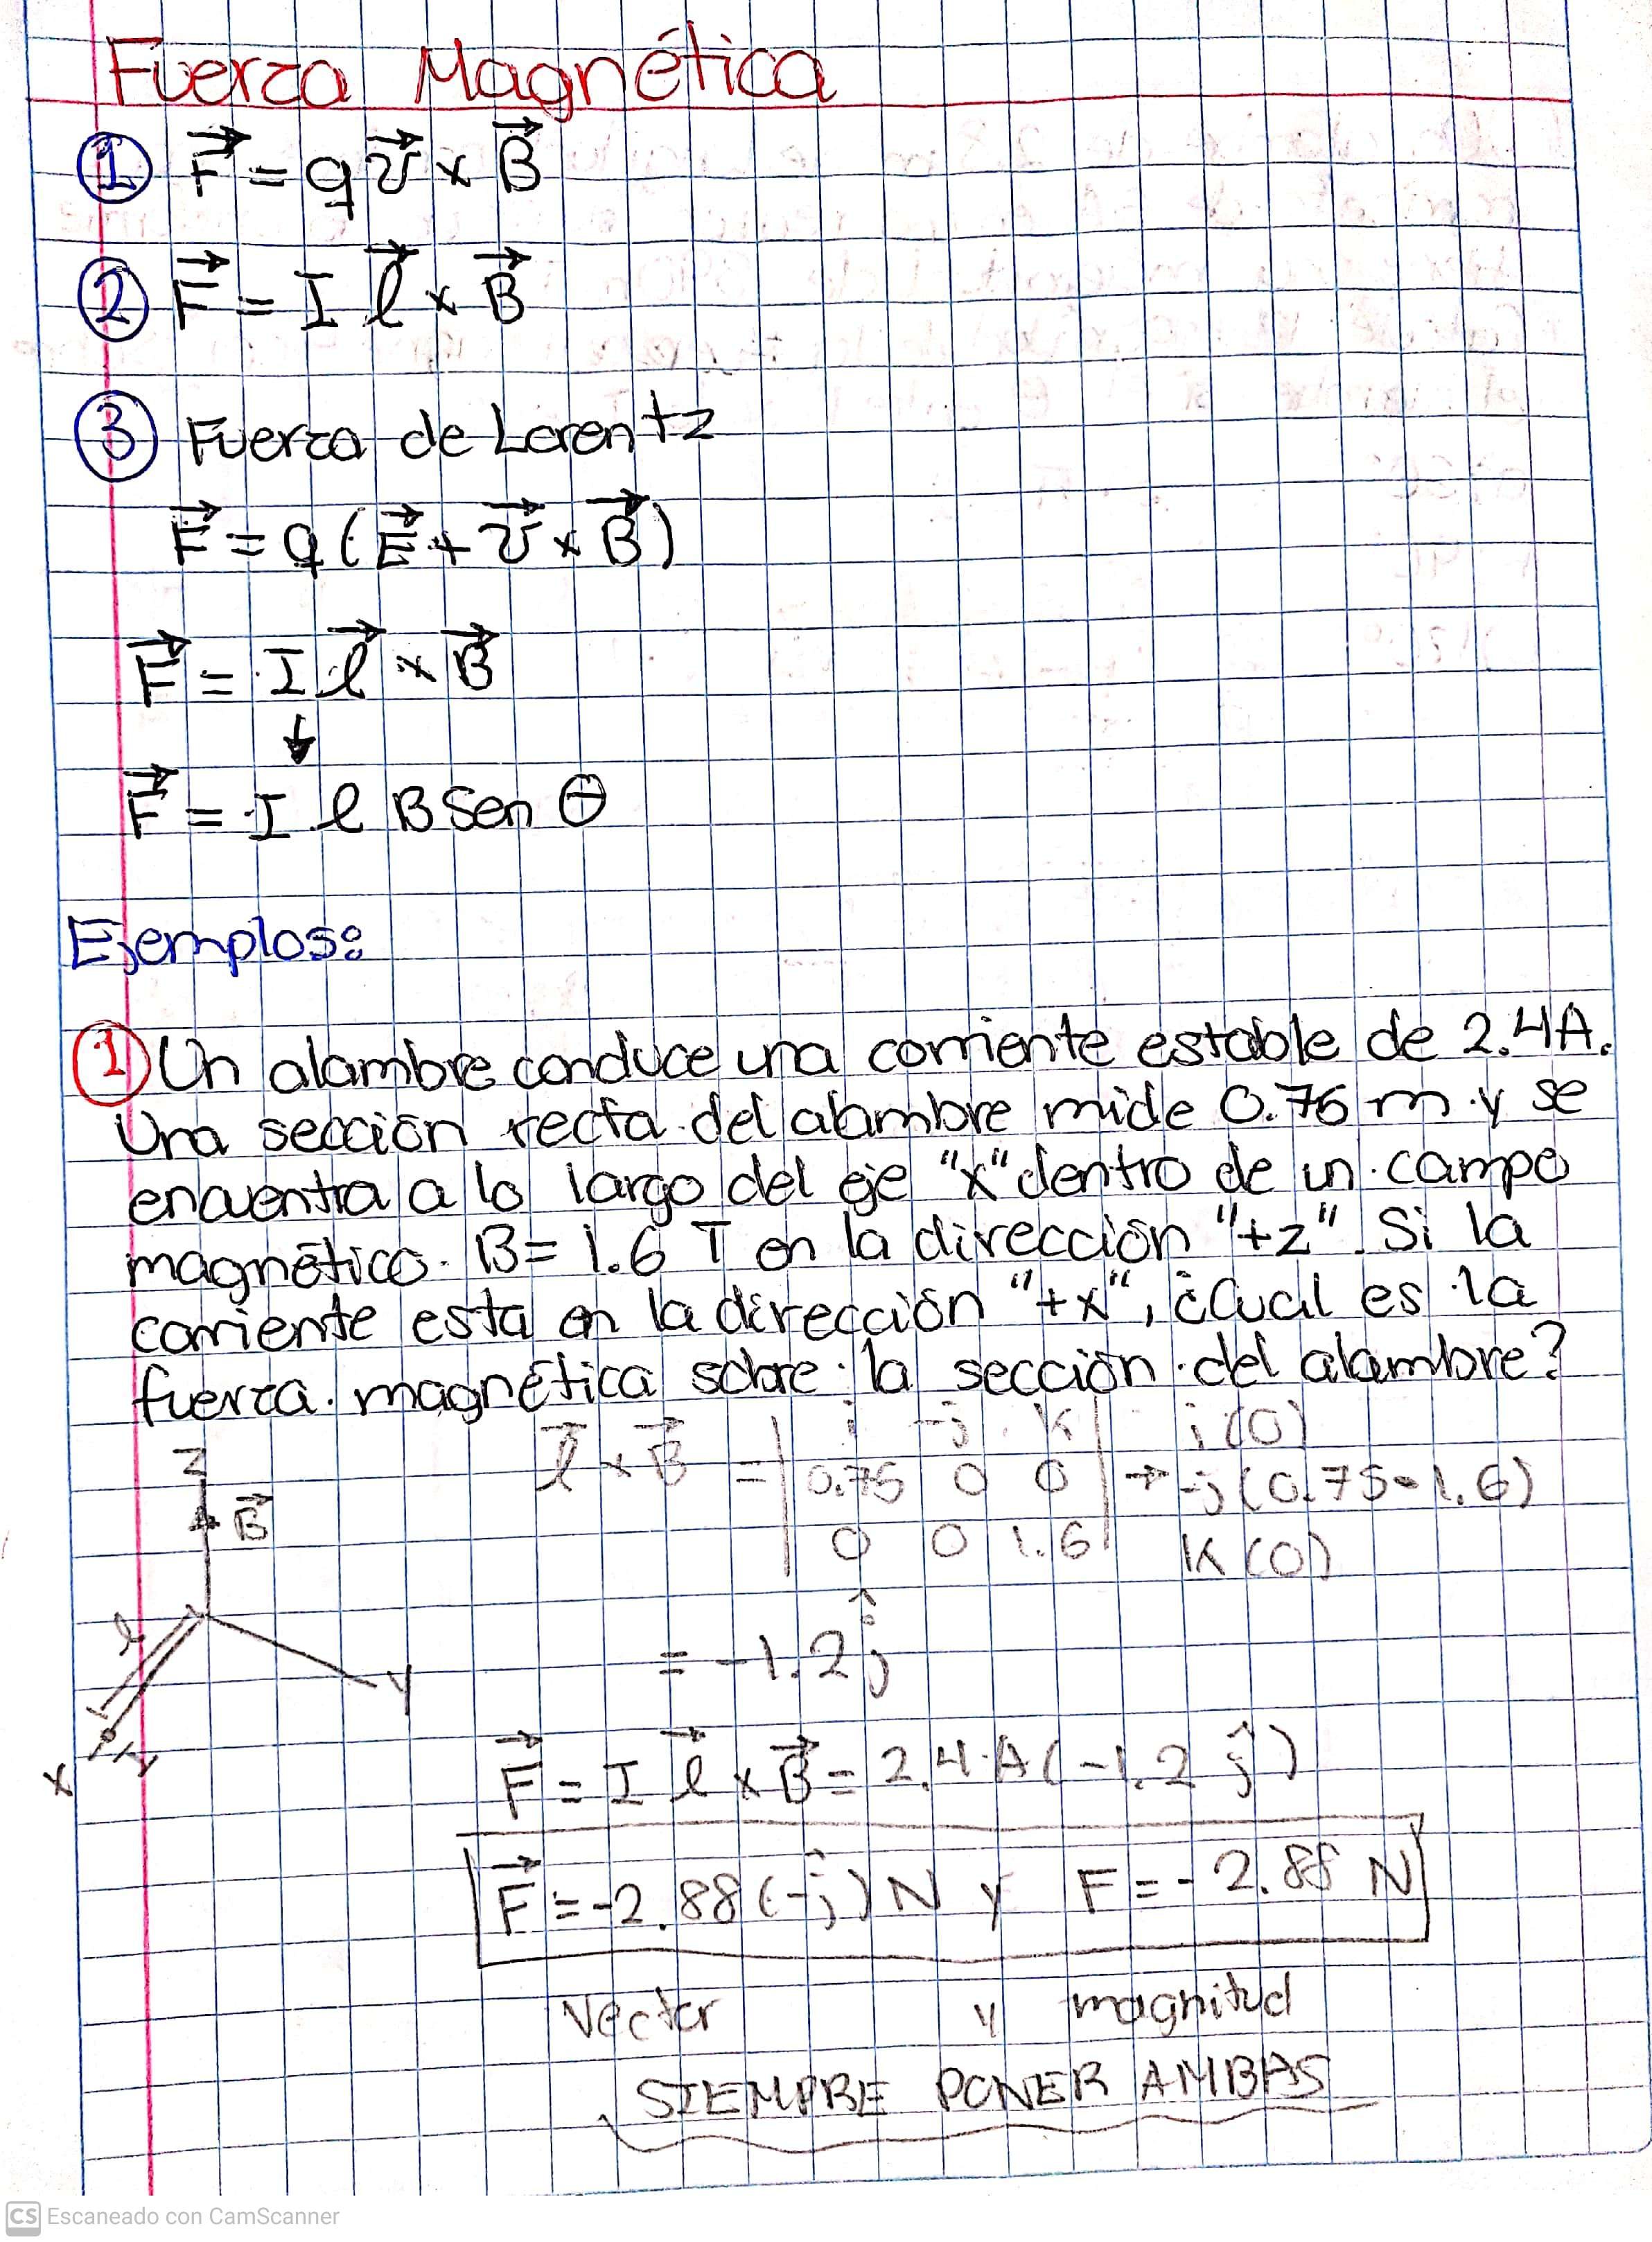 Fuerza Magnética
① F⃗ = q v⃗ x B⃗
② F⃗ = I l⃗ x B⃗
③ Fuerza de Lorentz
F⃗ = q (E⃗ + v⃗ x B⃗)
F⃗ = I l⃗ x B⃗
↓
F⃗ = I l B Sen θ
Ejemplos:
① Un alambre conduce una corriente estable de 2.4A.
Una sección recta del alambre mide 0.75 m y se
encuentra a lo largo del eje "x" dentro de un campo
magnético B = 1.6 T en la dirección "+z". Si la
corriente esta en la dirección "+x", ¿Cual es la
fuerza magnética sobre la sección del alambre?
z
B⃗
l
y
x
l⃗ x B⃗ = | i -j k | i (0)
| 0.75 0 0 | → -j (0.75 • 1.6)
| 0 0 1.6 | k (0)
= -1.2 ĵ
F⃗ = I l⃗ x B⃗ = 2.4 A (-1.2 ĵ)
F⃗ = -2.88 (-ĵ) N y F = -2.88 N
Vector y magnitud
SIEMPRE PONER AMBAS
CS Escaneado con CamScanner